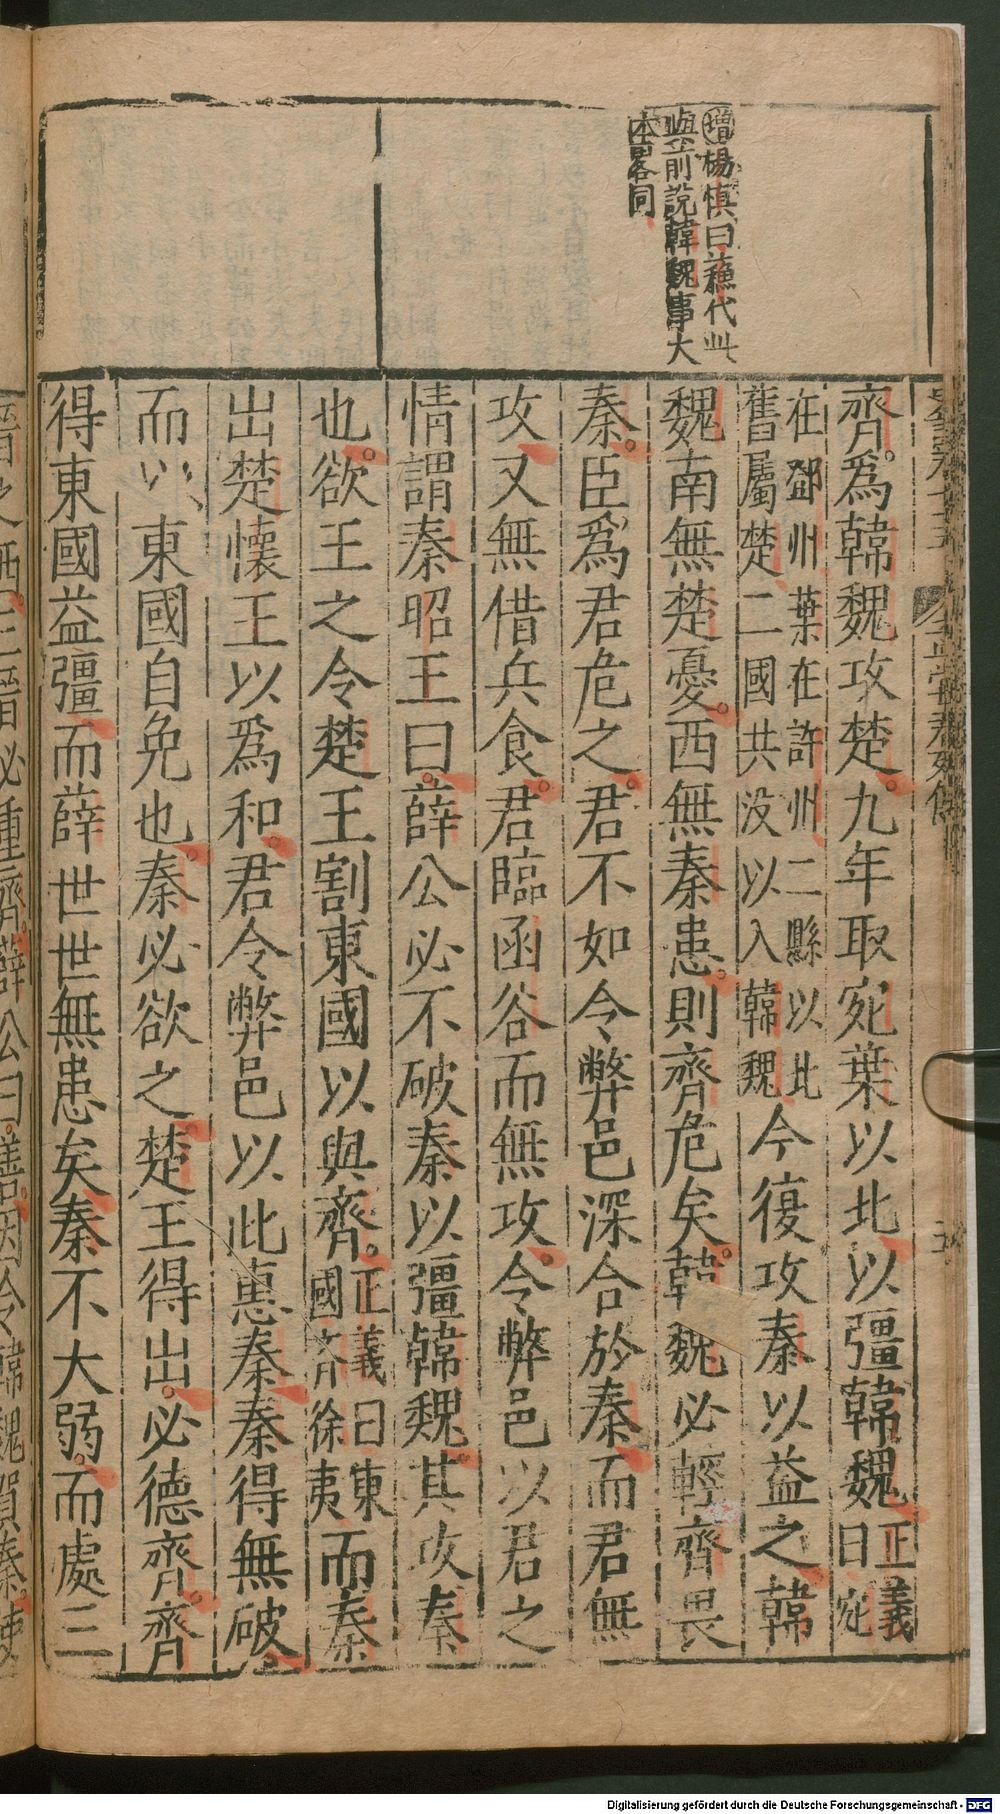 增楊慎曰蘓代此
與前說韓魏事大
本畧同
齊爲韓魏攻楚九年取宛葉以北以彊韓魏正義曰宛
在鄧州葉在許州二縣以北舊屬楚二國共没以入韓魏今復攻秦以益之韓
魏南無楚憂西無秦患則齊危矣韓魏必輕齊畏
秦臣爲君危之君不如令弊邑深合於秦而君無
攻又無借兵食君臨函谷而無攻令弊邑以君之
情謂秦昭王曰薛公必不破秦以彊韓魏其攻秦
也欲王之令楚王割東國以與齊正義曰東國齊徐夷而秦
出楚懷王以爲和君令弊邑以此惠秦秦得無破
而以東國自免也秦必欲之楚王得出必德齊齊
得東國益彊而薛世世無患矣秦不大弱而處三
Digitalisierung gefördert durch die Deutsche Forschungsgemeinschaft - DFG